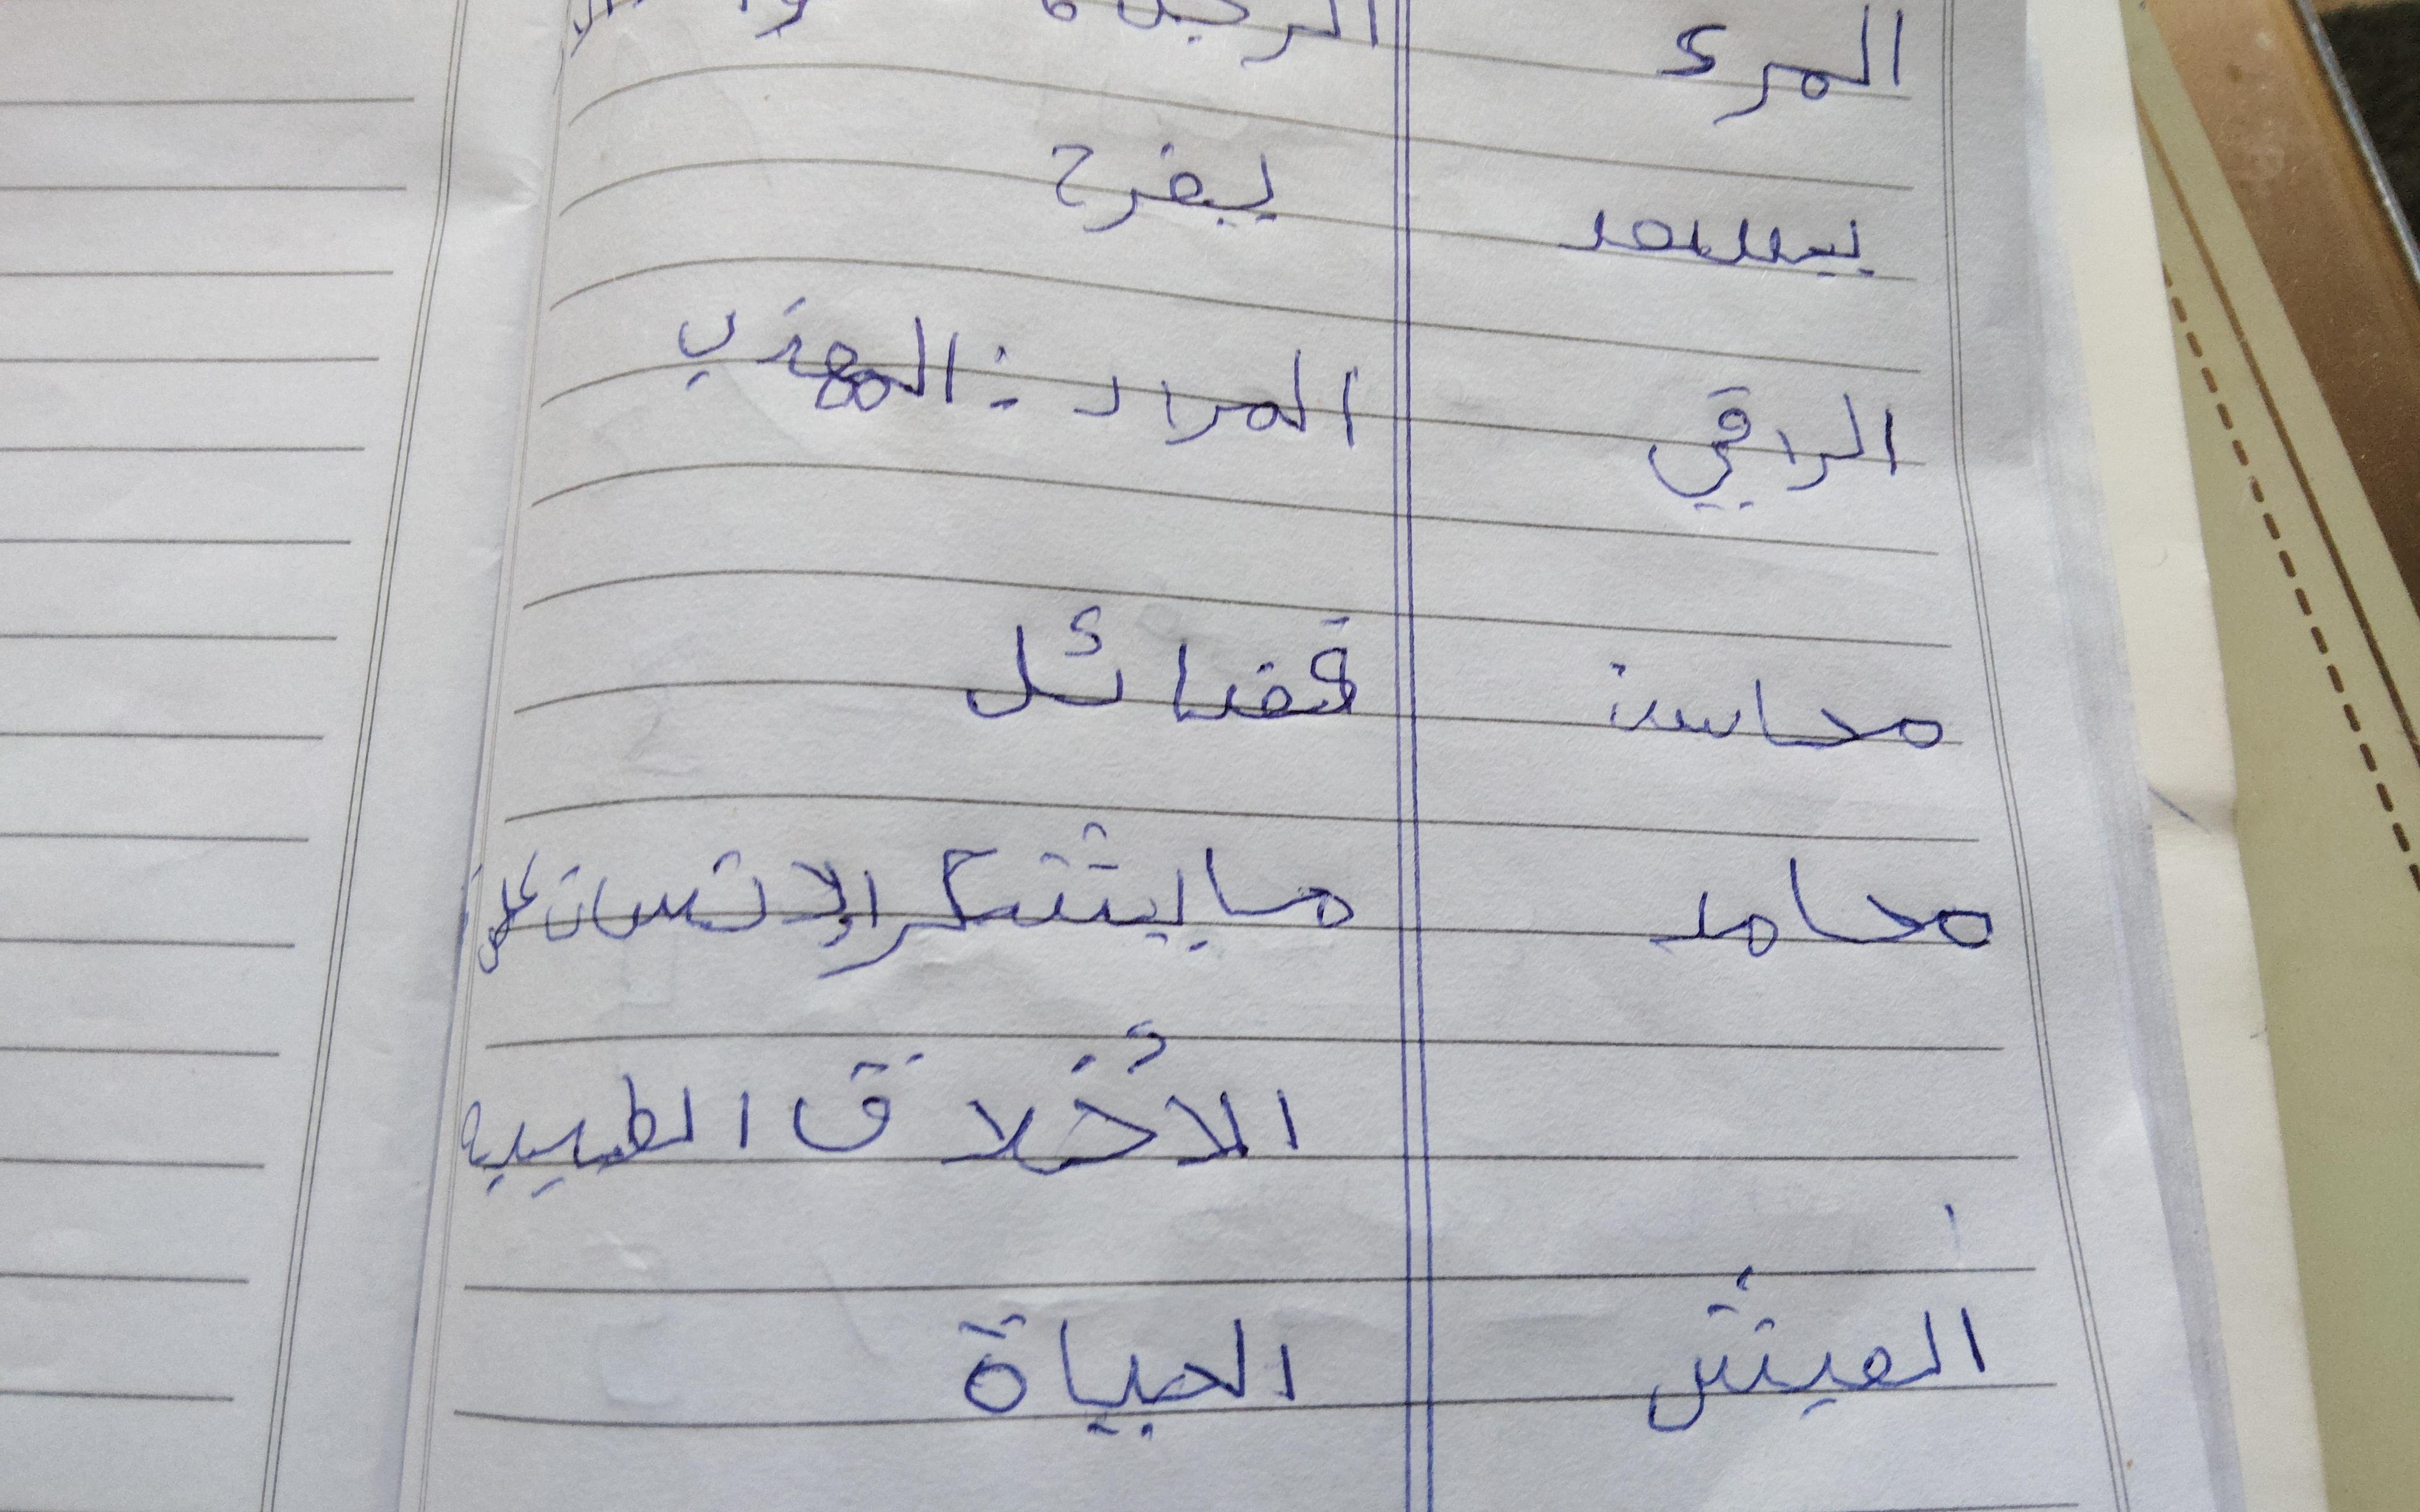 المرء الرجل
يسعد يفرح
الراقي المراد : المهذب
محاسن فضائل
محامد ما يشكر الإنسان على
الأخلاق الطيبة
العيش الحياة